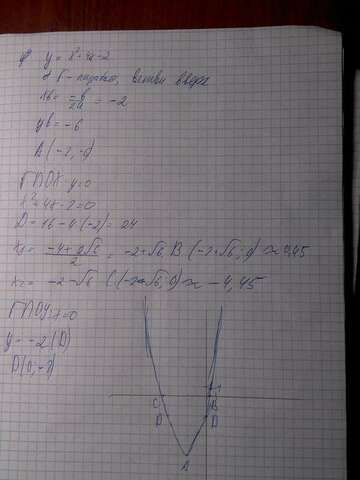 y = x²+4x-2
ветви вверх
xв = -b/2a = -2
yв = -6
A (-2, -6)
ГПОХ y=0
x²+4x-2=0
D = 16-4·(-2) = 24
x₁ = (-4+2√6)/2 = -2+√6, B (-2+√6, 0) ≈ 0,45
x₂ = -2-√6 C (-2-√6, 0) ≈ -4,45
ГПОУ x=0
y = -2 (D)
D(0, -2)
C B
D D
A